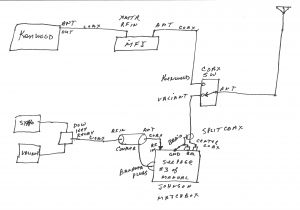 KENWOOD
ANT
OUT
COAX
XMTR
RF IN
MFJ
ANT
COAX
COAX
SW
KENWOOD
VALIANT
ANT
SPLIT COAX
CENTER
COAX
GND
RF IN
COUPLER
ANT
COAX
RF
IN
BANANA
PLUGS
VALIANT
DOW
KEY
RELAY
COAX
SEE PAGE
#3 OF
MANUAL
JOHNSON
MATCHBOX